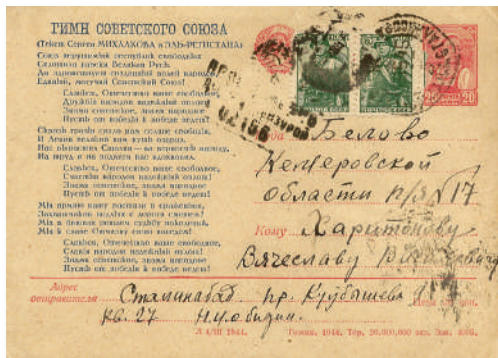 ГИМН СОВЕТСКОГО СОЮЗА
(Текст Сергея МИХАЛКОВА и ЭЛЬ-РЕГИСТАНА)
Союз нерушимый республик свободных
Сплотила навеки Великая Русь.
Да здравствует созданный волей народов
Единый, могучий Советский Союз!
Славься, Отечество наше свободное,
Дружбы народов надёжный оплот!
Знамя советское, знамя народное
Пусть от победы к победе ведёт!
Сквозь грозы сияло нам солнце свободы,
И Ленин великий нам путь озарил.
Нас вырастил Сталин — на верность народу,
На труд и на подвиги нас вдохновил.
Славься, Отечество наше свободное,
Счастья народов надёжный оплот!
Знамя советское, знамя народное
Пусть от победы к победе ведёт!
Мы армию нашу растили в сраженьях,
Захватчиков подлых с дороги сметём!
Мы в битвах решаем судьбу поколений,
Мы к славе Отчизну свою поведём!
Славься, Отечество наше свободное,
Славы народов надёжный оплот!
Знамя советское, знамя народное
Пусть от победы к победе ведёт!
20 20
02156
Белово
Кемеровской
области п/я №17
Кому Харитонову
Вячеславу
Адрес
отправителя Сталинабад пр. Куйбышева
кв. 27
1944.